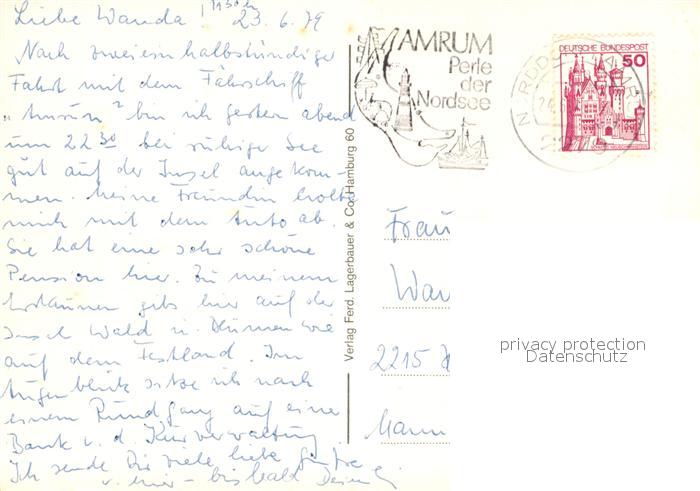 Liebe Wanda! 23.6.79
Nach zweieinhalbstündiger
Fahrt mit dem Fährschiff
„Amrum" bin ich gestern abend
um 22³⁰ bei ruhiger See
gut auf der Insel angekom-
men. Meine Freundin holte
mich mit dem Auto ab.
Sie hat eine sehr schöne
Pension hier. Zu meinem
Erstaunen gibt's hier auf der
Insel Wald u. Blumen wie
auf dem Festland. Im
Augenblick sitze ich nach
einem Rundgang auf einer
Bank v. d. Kurverwaltung
Ich sende Dir viele liebe Grüße
v. hier - bis bald Deine
Verlag Ferd. Lagerbauer & Co. Hamburg 60
AMRUM
Perle
der
Nordsee
DEUTSCHE BUNDESPOST
50
Frau
Wan
2215
Hann
privacy protection
Datenschutz